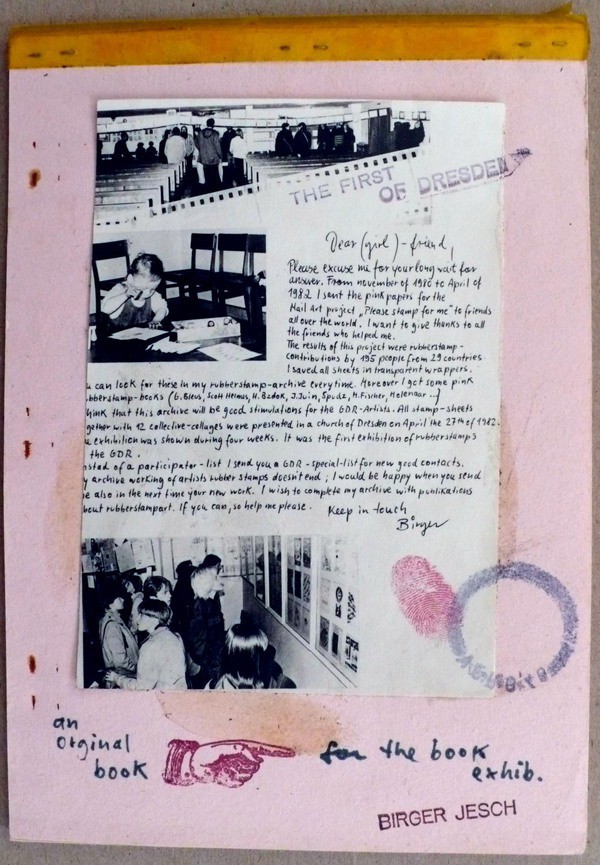 THE FIRST
OF DRESDEN
Dear (girl) - friend,
Please excuse me for your long wait for
answer. From november of 1980 to April of
1982 I sent the pink papers for the
Mail Art project „Please stamp for me" to friends
all over the world. I want to give thanks to all
the friends who helped me.
The results of this project were rubberstamp-
contributions by 195 people from 29 countries
I saved all sheets in transparent wrappers.
u can look for these in my rubberstamp-archive everytime. Moreover I got some pink
bberstamp-books (G. Bleus, Scott Helmes, H. Bzdok, J. Juin, Spudz, H. Fischer, Molenaar...)
hink that this archive will be good stimulations for the GDR-Artists. All stamp-sheets
gether with 12 collective-collages were presented in a church of Dresden on April the 27th of 1982.
e exhibition was shown during four weeks. It was the first exhibition of rubberstamps
the GDR.
nstad of a participator-list I send you a GDR-special-list for new good contacts.
y archive working of artists rubber stamps doesn't end; I would be happy when you send
e also in the next time your new work. I wish to complete my archive with publikations
bout rubberstampart. If you can, so help me please.
Keep in touch
Birger
an
orginal
book
for the book
exhib.
BIRGER JESCH